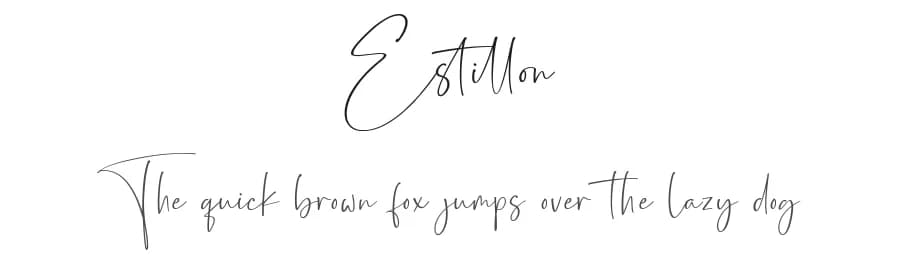 Estillon
The quick brown fox jumps over the lazy dog